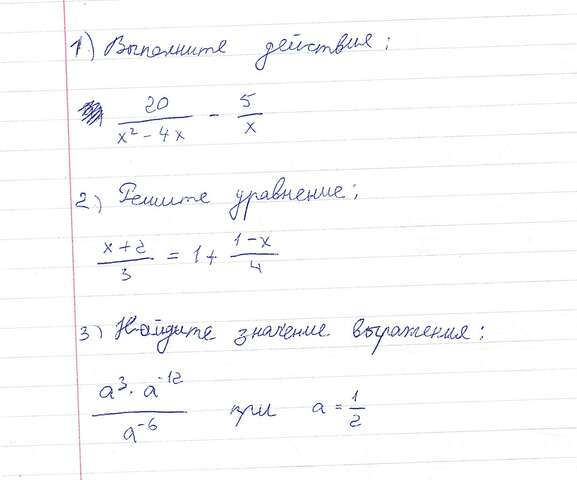 1) Выполните действия:
20/(x² - 4x) - 5/x
2) Решите уравнение:
(x+2)/3 = 1 + (1-x)/4
3) Найдите значение выражения:
(a³ · a⁻¹²)/a⁻⁶ при a = 1/2